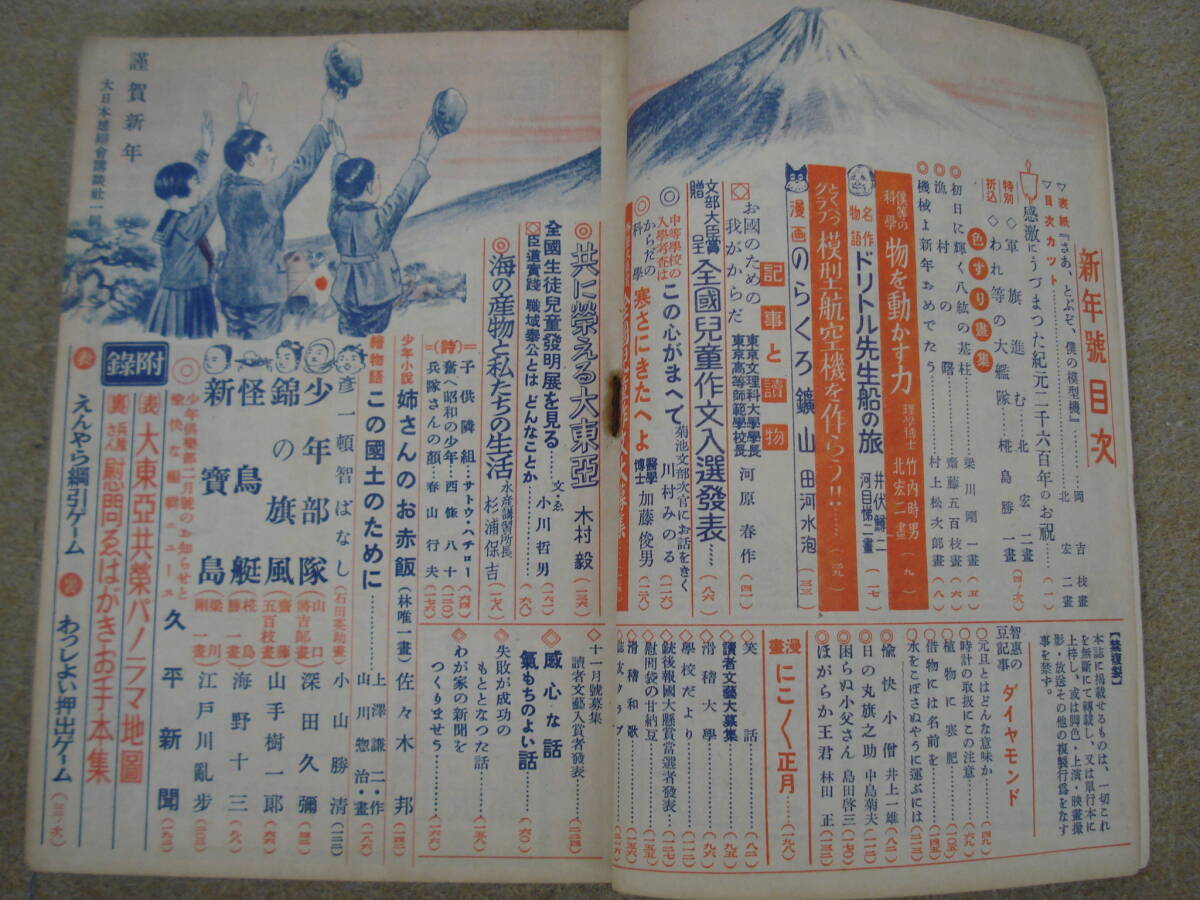 新年號目次
▽表紙『さあ、とぶぞ、僕の模型機』 岡吉枝畫
▽目次カット 北宏二畫
感激にうづまつた紀元二千六百年のお祝 (一)
特別折込
◇軍旗進む 北宏二畫
◇われ等の大艦隊 椛島勝一畫 (四・六)
色ずり畫集
初日に輝く八紘の基柱 梁川剛一畫 (五)
漁村の曙 齋藤五百枝畫 (六)
機械よ新年おめでたう 村上松次郎畫 (八)
僕等の科學 物を動かす力 理學博士 竹内時男 北宏二畫 (九)
名作物語 ドリトル先生船の旅 井伏鱒二 河目悌二畫 (一七)
とくべつグラフ 模型航空機を作らう!! (二九)
漫画 のらくろ鑛山 田河水泡 (三三)
記事と讀物
お國のための我がからだ 東京文理科大學學長 東京高等師範學校長 河原春作 (四一)
文部大臣賞贈呈 全國兒童作文入選發表 (八六)
中等學校の入學考査は この心がまへで 菊池文部次官にお話をきく 川村みのる
からだの科學 寒さにきたへよ 醫學博士 加藤俊男 (二一八)
共に榮える大東亞 木村毅 (一三六)
全國生徒兒童發明展を見る 文・ゑ 小川哲男 (一六二)
臣道實踐 職域奉公とはどんなことか (六八)
海の産物と私たちの生活 水産講習所長 杉浦保吉 (一九八)
=(詩)=
子供隣組 サトウ・ハチロー (六四)
奮へ昭和の少年 西條八十 (一三〇)
兵隊さんの顔 春山行夫 (一七六)
少年小説 姉さんのお赤飯 (林唯一畫) 佐々木邦 (一四二)
繪物語 この國土のために 上澤謙二・作 山川惣治・畫 (一八六)
彦一頓智ばなし (石田英助畫) 小山勝清 (一二二)
少年部隊 (山口將吉郎畫) 深田久彌
錦の旗風 (齋藤五百枝畫) 山手樹一郎
怪鳥艇 (椛島勝一畫) 海野十三
新寶島 (梁川剛一畫) 江戸川亂歩
少年倶樂部二月號のお知らせと愉快な編輯ニュース 久平新聞
附録
表 大東亞共榮パノラマ地圖
裏 兵隊さん慰問ゑはがきお手本集
表 えんやら綱引ゲーム
裏 わつしよい押出ゲーム
謹賀新年
大日本雄辯會講談社一同
【禁複製】
本誌に掲載せるものは、一切これを無斷にて轉載し、又は單行本に上梓し、或は脚色・上演・映畫撮影・放送その他の複製行爲をなす事を禁ず。
智惠の豆記事 ダイヤモンド
元旦とはどんな意味か (四九)
時計の取扱にこの注意 (六九)
植物に寒肥 (一一六)
借物には名前を (一四五)
水をこぼさぬやうに運ぶには (二一三)
愉快小僧 井上一雄 (八二)
日の丸旗之助 中島菊夫 (一一二)
困らぬ小父さん 島田啓三 (一七〇)
ほがらか王君 林田正 (一三二)
漫畫 にこ〱正月 (一九八)
笑話 (八二)
讀者文藝大募集 (九五)
滑稽大學 (九六)
學校だより (一一二)
銃後報國大懸賞當選者發表
慰問袋の甘納豆
滑稽和歌
誌友クラブ
十一月號募集 讀者文藝入賞者發表 (二二四)
感心な話
氣もちのよい話 (六〇)
失敗が成功のもととなつた話 (一五八)
わが家の新聞をつくりませう (一六六)